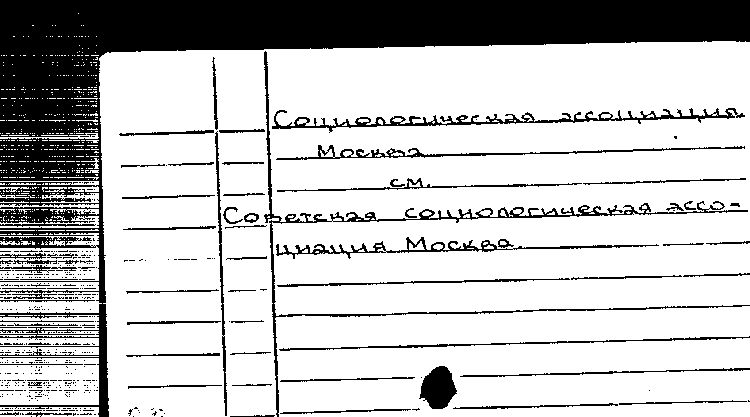 Социологическая ассоциация
Москва
см.
Советская социологическая ассо-
циация Москва.